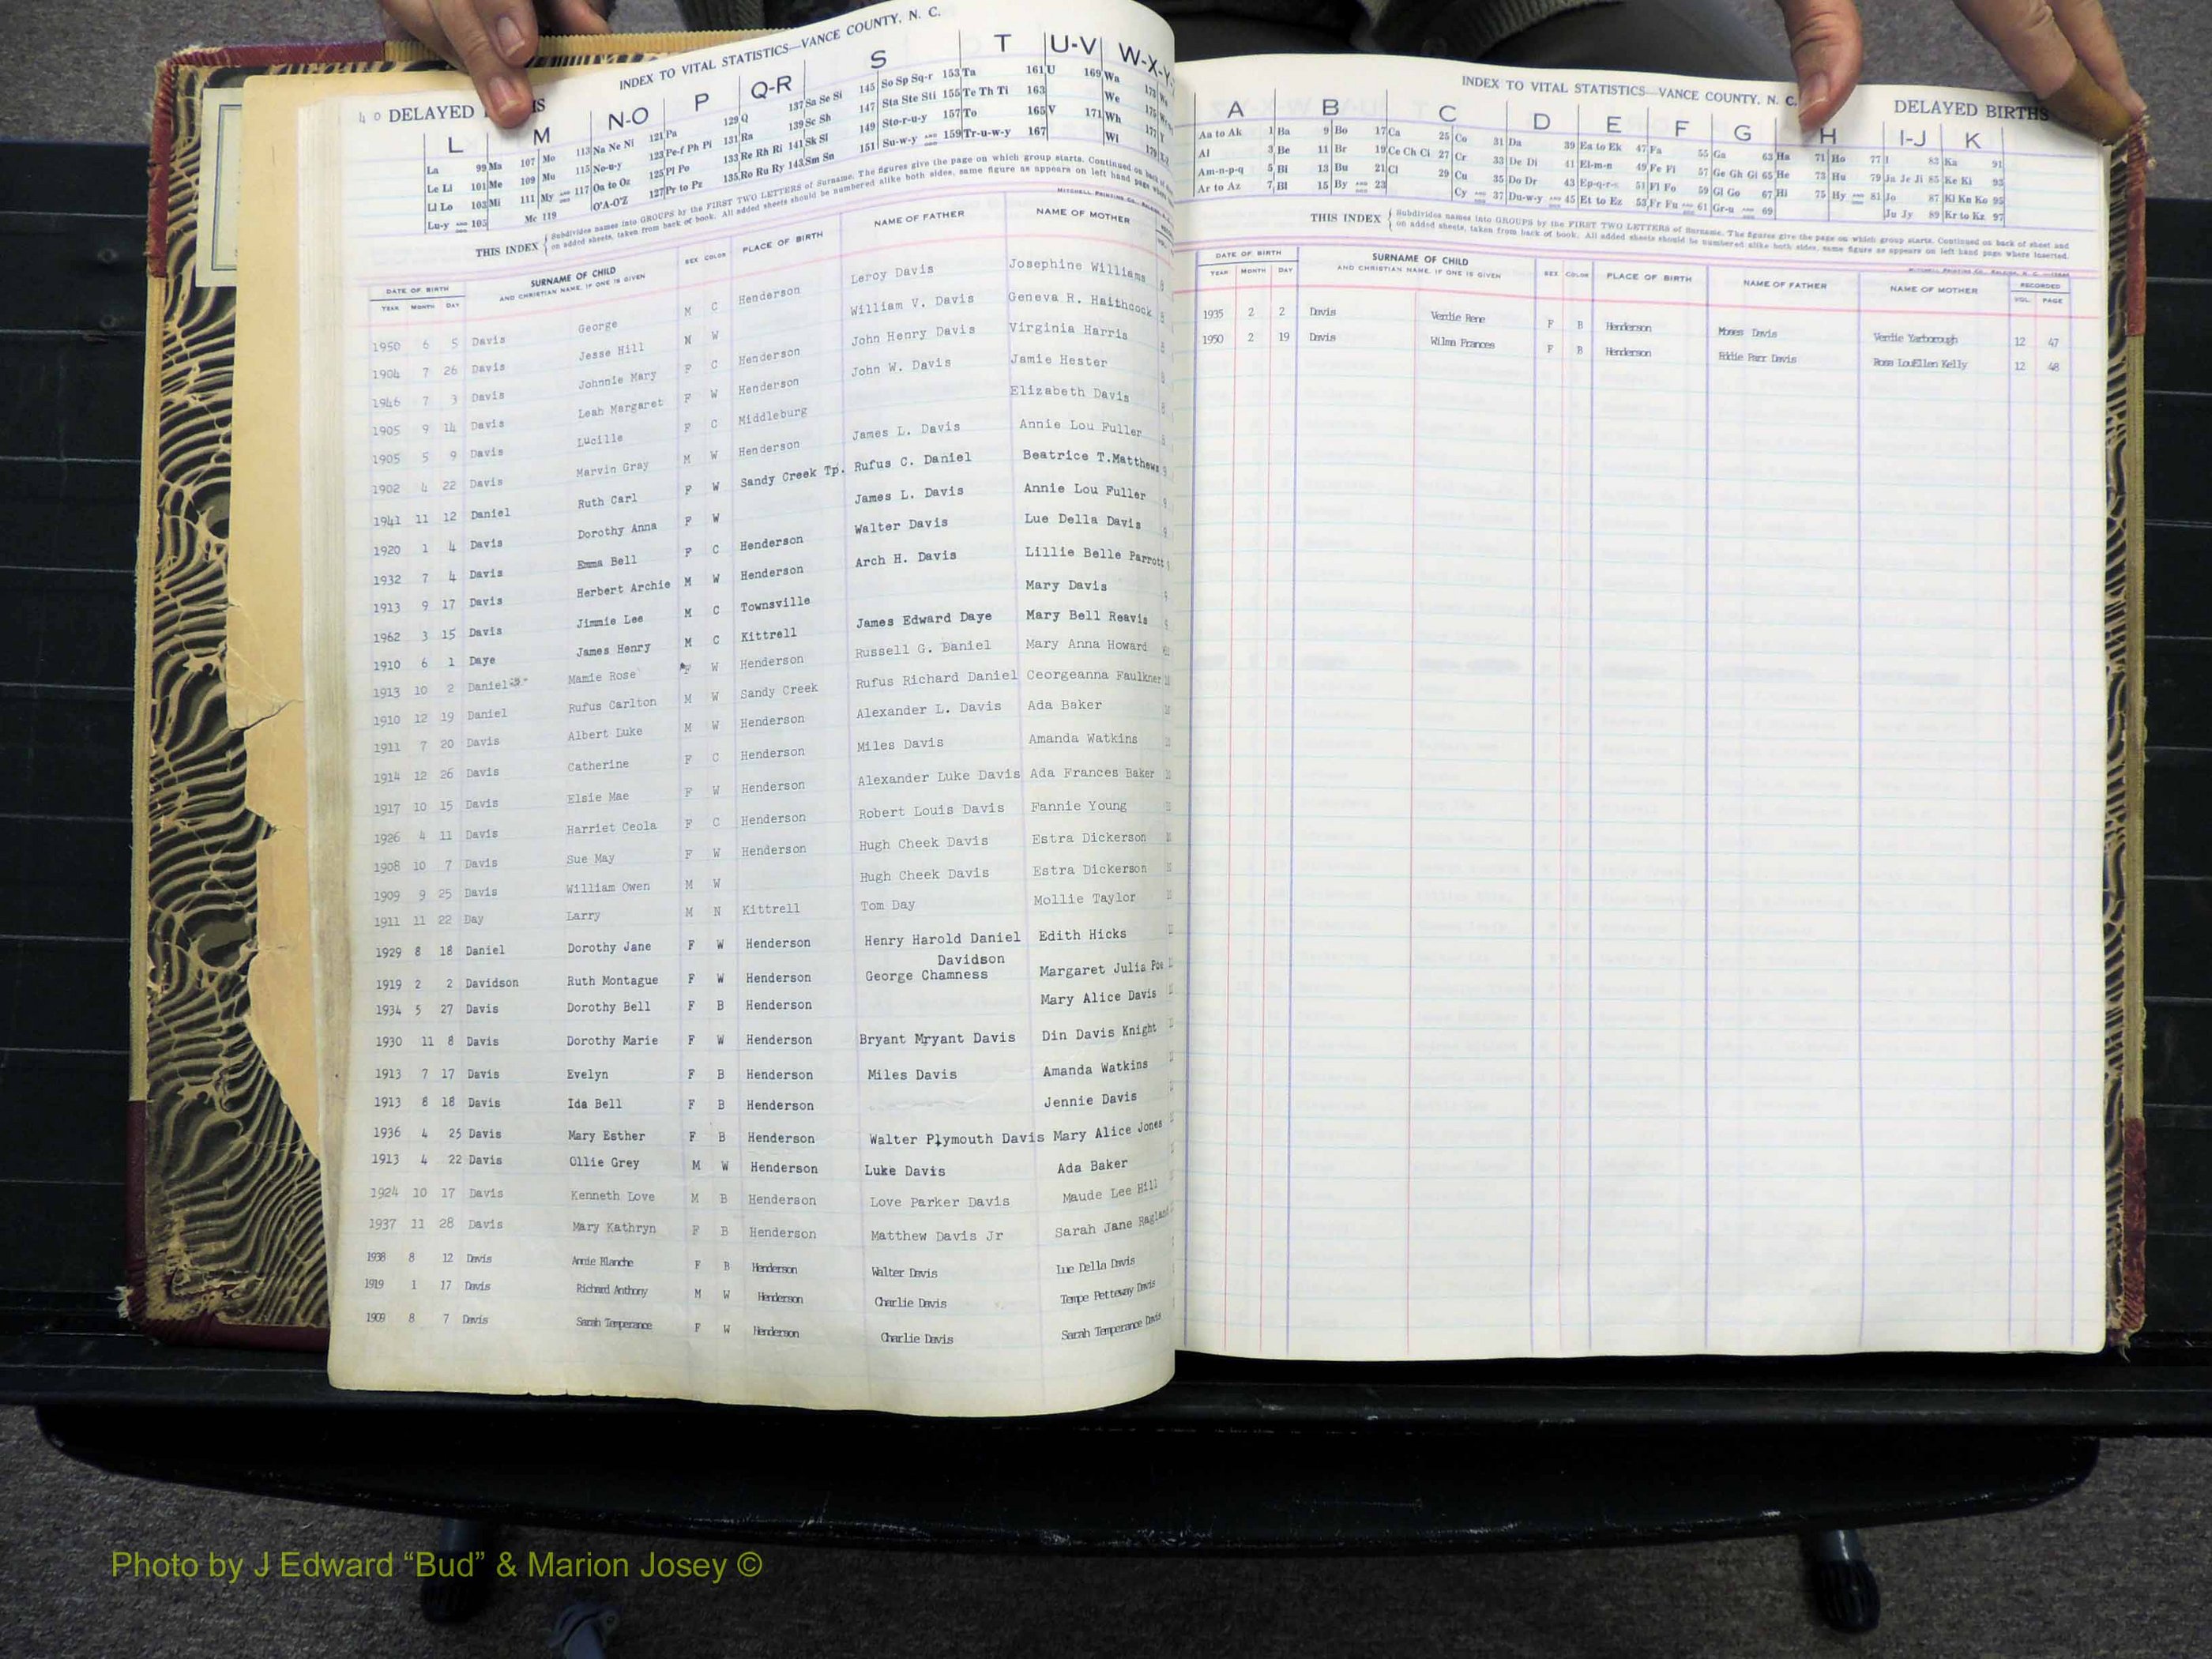 INDEX TO VITAL STATISTICS—VANCE COUNTY, N. C.
40 DELAYED
L M N-O P Q-R S T U-V W-X-Y
La 99 Ma 107 Mo 113 Na Ne Ni 121 Pa 129 Q 137 Sa Se Si 145 So Sp Sq-r 153 Ta 161 U 169 Wa
Le Li 101 Me 109 Mu 115 No-u-y 123 Pe-f Ph Pi 131 Ra 139 Sc Sh 147 Sta Ste Sti 155 Te Th Ti 163 We
Ll Lo 103 Mi 111 My AND 117 Oa to Oz 125 Pl Po 133 Re Rh Ri 141 Sk Sl 149 Sto-r-u-y 157 To 165 V 171 Wh
Lu-y AND 105 Mc 119 O'A-O'Z 127 Pr to Pz 135 Ro Ru Ry 143 Sm Sn 151 Su-w-y AND 159 Tr-u-w-y 167 Wi
THIS INDEX { Subdivides names into GROUPS by the FIRST TWO LETTERS of Surname. The figures give the page on which group starts. Continued on back of
on added sheets, taken from back of book. All added sheets should be numbered alike both sides, same figure as appears on left hand page where
DATE OF BIRTH SURNAME OF CHILD SEX COLOR PLACE OF BIRTH NAME OF FATHER NAME OF MOTHER
YEAR MONTH DAY AND CHRISTIAN NAME, IF ONE IS GIVEN
1950 6 5 Davis George M C Henderson Leroy Davis Josephine Williams
1904 7 26 Davis Jesse Hill M W William V. Davis Geneva R. Haithcock
1946 7 3 Davis Johnnie Mary F C Henderson John Henry Davis Virginia Harris
1905 9 14 Davis Leah Margaret F W Henderson John W. Davis Jamie Hester
1905 5 9 Davis Lucille F C Middleburg Elizabeth Davis
1902 4 22 Davis Marvin Gray M W Henderson James L. Davis Annie Lou Fuller
1941 11 12 Daniel Ruth Carl F W Sandy Creek Tp. Rufus C. Daniel Beatrice T.Matthews
1920 1 4 Davis Dorothy Anna F W James L. Davis Annie Lou Fuller
1932 7 4 Davis Emma Bell F C Henderson Walter Davis Lue Della Davis
1913 9 17 Davis Herbert Archie M W Henderson Arch H. Davis Lillie Belle Parrott
1962 3 15 Davis Jimmie Lee M C Townsville Mary Davis
1910 6 1 Daye James Henry M C Kittrell James Edward Daye Mary Bell Reavis
1913 10 2 Daniel Mamie Rose F W Henderson Russell G. Daniel Mary Anna Howard
1910 12 19 Daniel Rufus Carlton M W Sandy Creek Rufus Richard Daniel Ceorgeanna Faulkner
1911 7 20 Davis Albert Luke M W Henderson Alexander L. Davis Ada Baker
1914 12 26 Davis Catherine F C Henderson Miles Davis Amanda Watkins
1917 10 15 Davis Elsie Mae F W Henderson Alexander Luke Davis Ada Frances Baker
1926 4 11 Davis Harriet Ceola F C Henderson Robert Louis Davis Fannie Young
1908 10 7 Davis Sue May F W Henderson Hugh Cheek Davis Estra Dickerson
1909 9 25 Davis William Owen M W Hugh Cheek Davis Estra Dickerson
1911 11 22 Day Larry M N Kittrell Tom Day Mollie Taylor
1929 8 18 Daniel Dorothy Jane F W Henderson Henry Harold Daniel Edith Hicks
Davidson
1919 2 2 Davidson Ruth Montague F W Henderson George Chamness Margaret Julia Poe
1934 5 27 Davis Dorothy Bell F B Henderson Mary Alice Davis
1930 11 8 Davis Dorothy Marie F W Henderson Bryant Mryant Davis Din Davis Knight
1913 7 17 Davis Evelyn F B Henderson Miles Davis Amanda Watkins
1913 8 18 Davis Ida Bell F B Henderson Jennie Davis
1936 4 25 Davis Mary Esther F B Henderson Walter Plymouth Davis Mary Alice Jones
1913 4 22 Davis Ollie Grey M W Henderson Luke Davis Ada Baker
1924 10 17 Davis Kenneth Love M B Henderson Love Parker Davis Maude Lee Hill
1937 11 28 Davis Mary Kathryn F B Henderson Matthew Davis Jr Sarah Jane Ragland
1938 8 12 Davis Annie Blanche F B Henderson Walter Davis Lue Della Davis
1919 1 17 Davis Richard Anthony M W Henderson Charlie Davis Tempe Petteway Davis
1909 8 7 Davis Sarah Temperance F W Henderson Charlie Davis Sarah Temperance Davis
INDEX TO VITAL STATISTICS—VANCE COUNTY, N. C.
DELAYED BIRTHS
A B C D E F G H I-J K
Aa to Ak 1 Ba 9 Bo 17 Ca 25 Co 31 Da 39 Ea to Ek 47 Fa 55 Ga 63 Ha 71 Ho 77 I 83 Ka 91
Al 3 Be 11 Br 19 Ce Ch Ci 27 Cr 33 De Di 41 El-m-n 49 Fe Fi 57 Ge Gh Gi 65 He 73 Hu 79 Ja Je Ji 85 Ke Ki 93
Am-n-p-q 5 Bi 13 Bu 21 Cl 29 Cu 35 Do Dr 43 Ep-q-r-s 51 Fl Fo 59 Gl Go 67 Hi 75 Hy AND 81 Jo 87 Kl Kn Ko 95
Ar to Az 7 Bl 15 By AND 23 Cy AND 37 Du-w-y AND 45 Et to Ez 53 Fr Fu AND 61 Gr-u AND 69 Ju Jy 89 Kr to Kz 97
THIS INDEX { Subdivides names into GROUPS by the FIRST TWO LETTERS of Surname. The figures give the page on which group starts. Continued on back of sheet and
on added sheets, taken from back of book. All added sheets should be numbered alike both sides, same figure as appears on left hand page where inserted.
DATE OF BIRTH SURNAME OF CHILD SEX COLOR PLACE OF BIRTH NAME OF FATHER NAME OF MOTHER RECORDED
YEAR MONTH DAY AND CHRISTIAN NAME, IF ONE IS GIVEN VOL. PAGE
1935 2 2 Davis Verdie Rene F B Henderson Moses Davis Verdie Yarborough 12 47
1950 2 19 Davis Wilma Frances F B Henderson Eddie Parr Davis Rosa LouEllen Kelly 12 48
Photo by J Edward “Bud” & Marion Josey ©